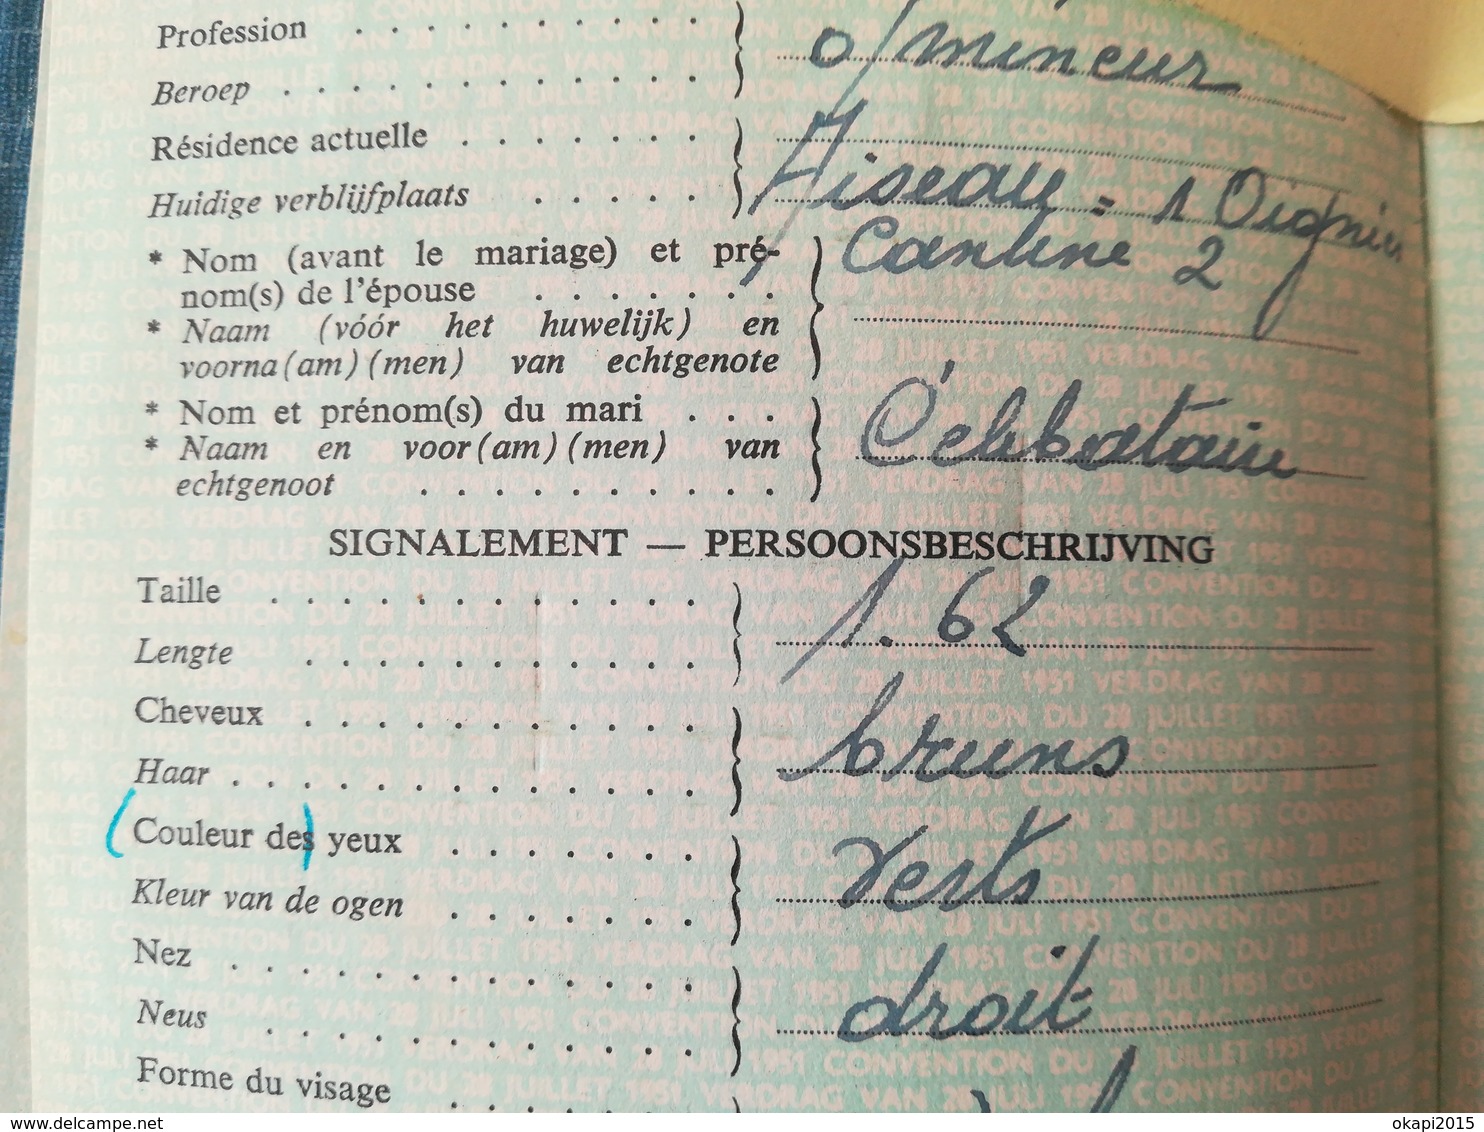 Profession
o/mineur
Beroep
Résidence actuelle
Aiseau = 1 Oignies
Huidige verblijfplaats
Cantine 2
* Nom (avant le mariage) et pré-
nom(s) de l'épouse
* Naam (vóór het huwelijk) en
voorna(am)(men) van echtgenote
* Nom et prénom(s) du mari
Célibataire
* Naam en voor(am)(men) van
echtgenoot
SIGNALEMENT — PERSOONSBESCHRIJVING
Taille
1.62
Lengte
Cheveux
bruns
Haar
(Couleur des) yeux
verts
Kleur van de ogen
Nez
droit
Neus
Forme du visage
okapi2015